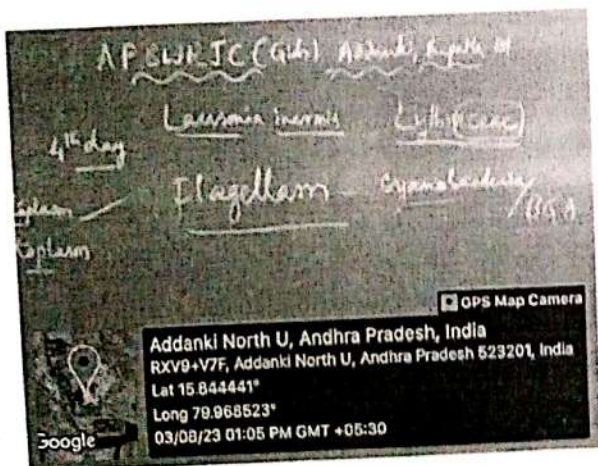 AP SWRJC (Girls) Addanki,
Lawsonia inermis Lythraceae
4th day
Flagellam - Cyanobacteria/BGA
plasm
GPS Map Camera
Addanki North U, Andhra Pradesh, India
RXV9+V7F, Addanki North U, Andhra Pradesh 523201, India
Lat 15.844441°
Long 79.968523°
03/08/23 01:05 PM GMT +05:30
Google